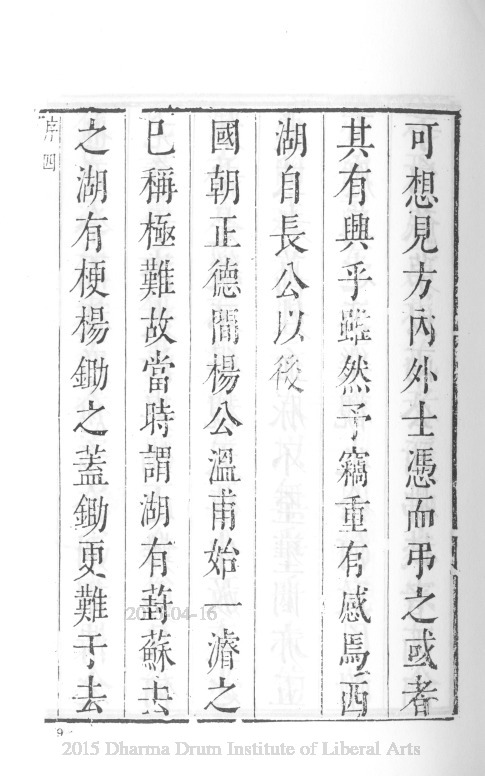 可想見方內外士憑而弔之或者
其有興乎雖然予竊重有感焉西
湖自長公以後
國朝正德間楊公溫甫始一濬之
已稱極難故當時謂湖有葑蘇去
之湖有梗楊鋤之蓋鋤更難于去
序四
9
2015-04-16
2015 Dharma Drum Institute of Liberal Arts